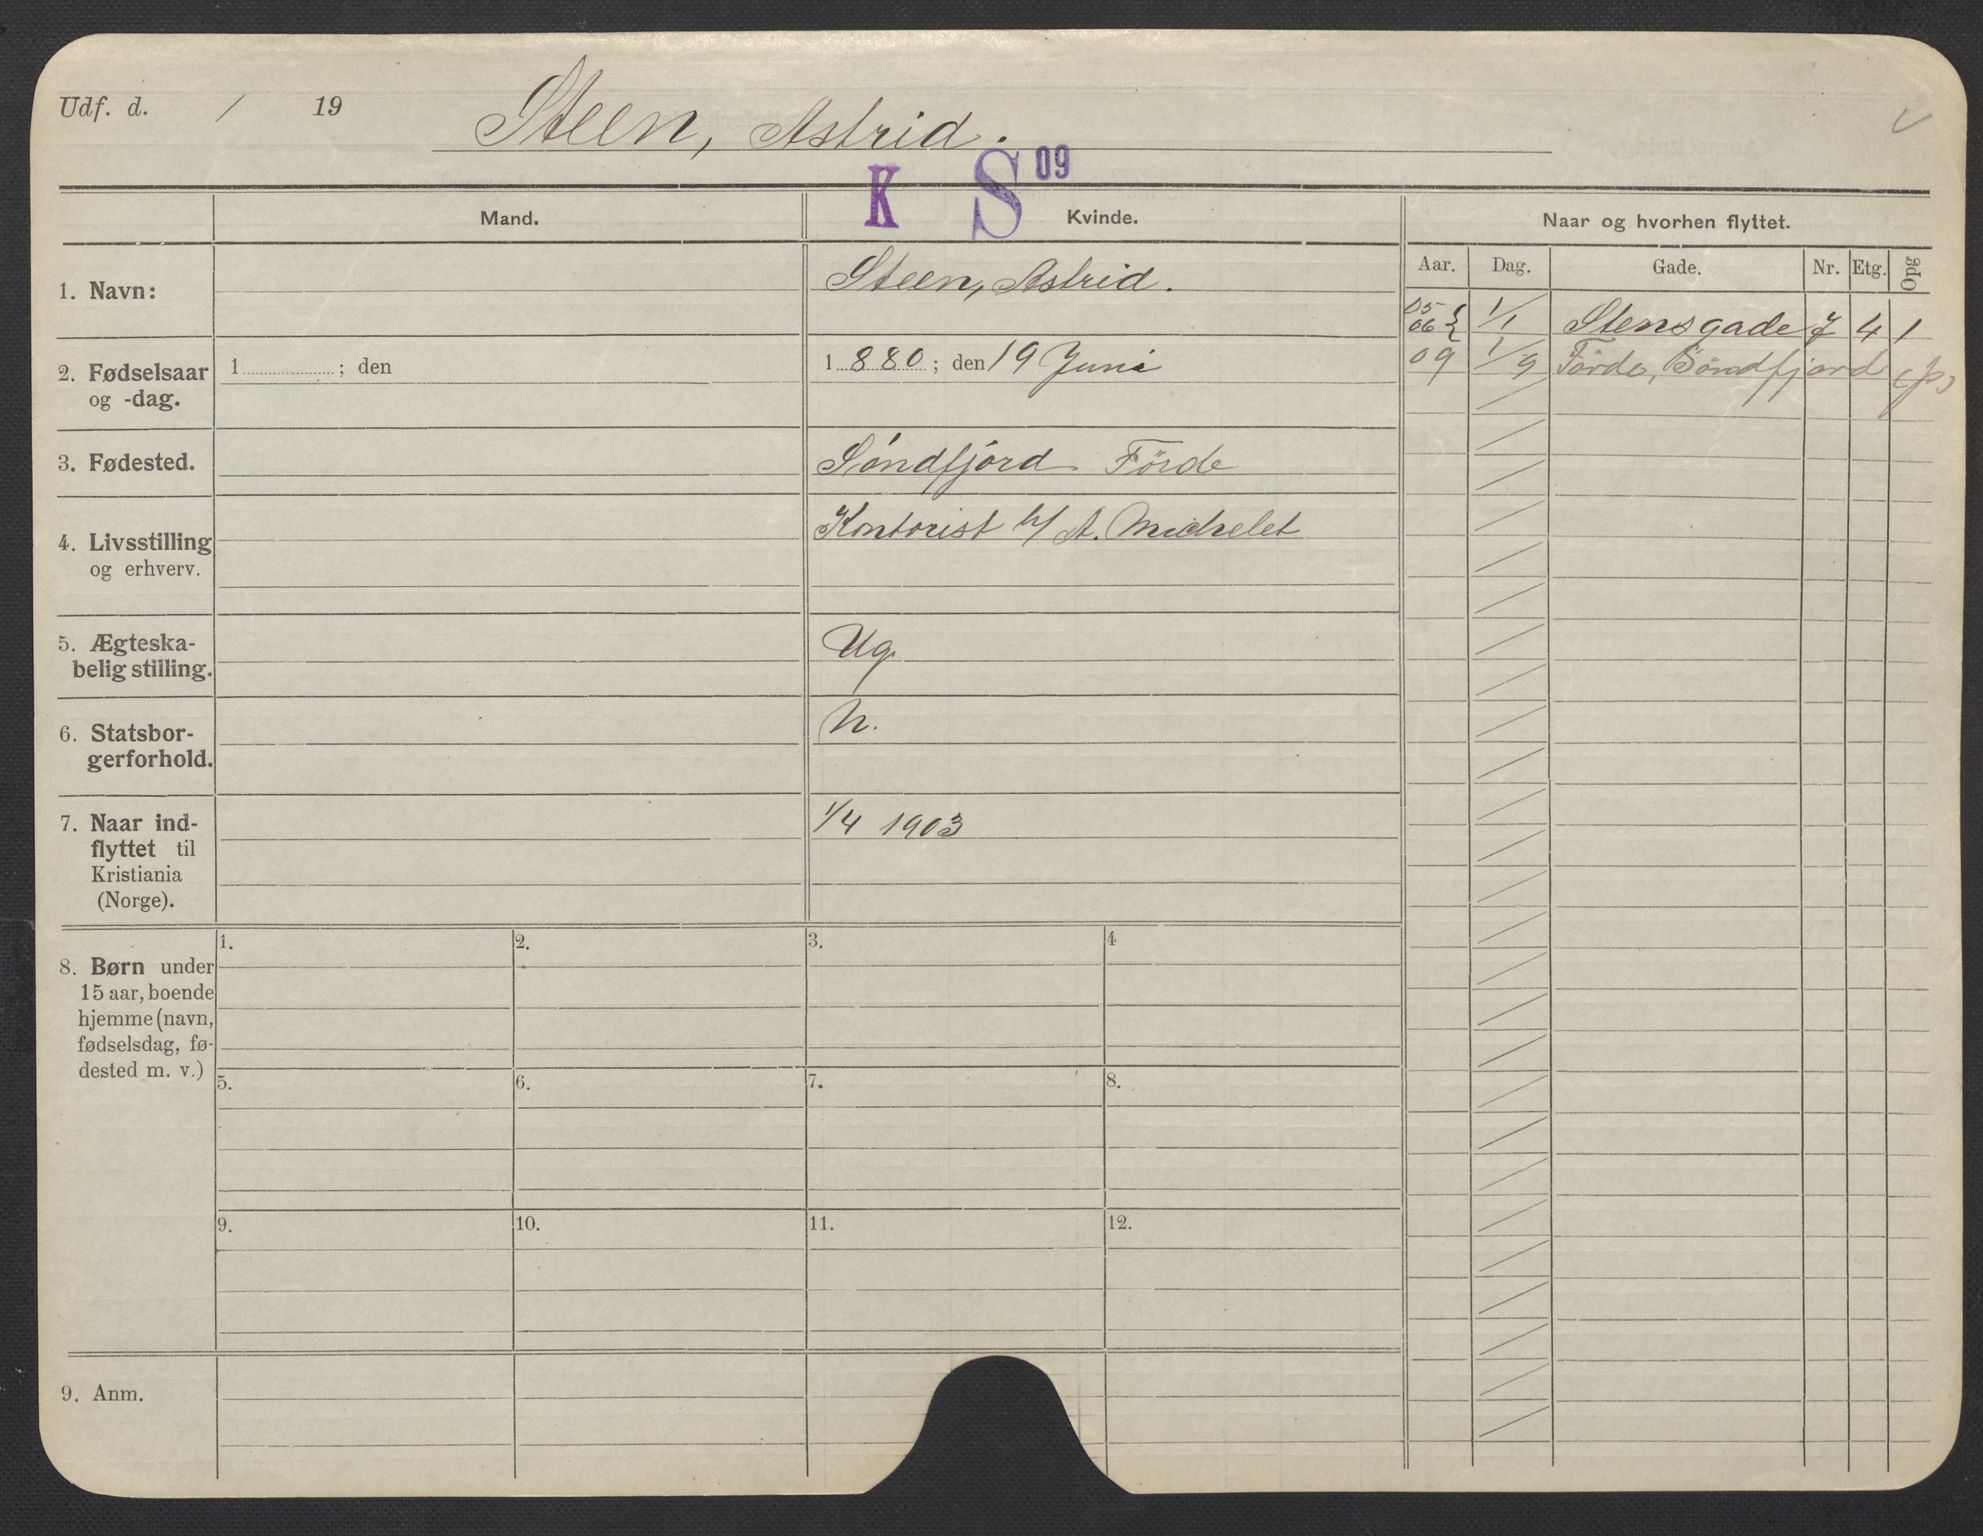 Udf. d. / 19 Steen, Astrid.
K S 09
Mand. Kvinde. Naar og hvorhen flyttet.
Aar. Dag. Gade. Nr. Etg. Opg
1. Navn: Steen, Astrid.
05
06 } 1/1 Stensgade 7 4 1
2. Fødselsaar
og -dag.
1 ; den
1 880 ; den 19 Juni
09 1/9 Förde, Söndfjord
3. Fødested. Söndfjord Förde
4. Livsstilling
og erhverv.
Kontorist h/ A. Michelet
5. Ægteska-
belig stilling.
Ug.
6. Statsbor-
gerforhold.
N.
7. Naar ind-
flyttet til
Kristiania
(Norge).
1/4 1903
8. Børn under
15 aar, boende
hjemme (navn,
fødselsdag, fø-
dested m. v.)
1. 2. 3. 4
5. 6. 7. 8.
9. 10. 11. 12.
9. Anm.